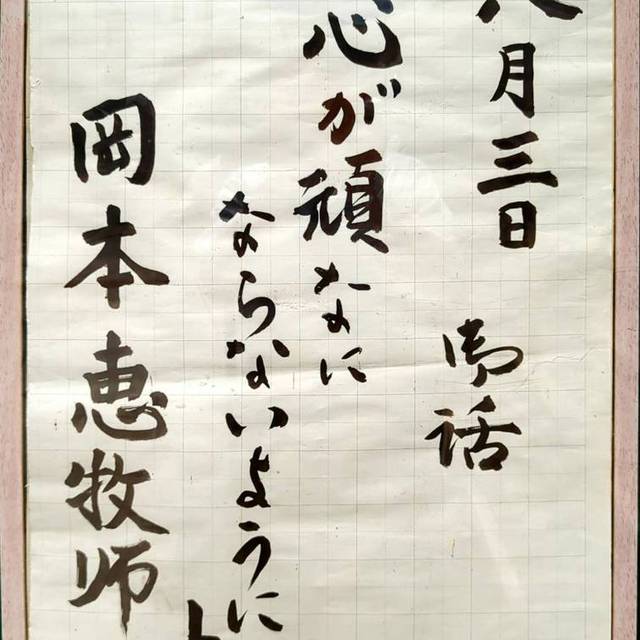 月三日 御話
心が頑なに
ならないように
岡本恵牧师